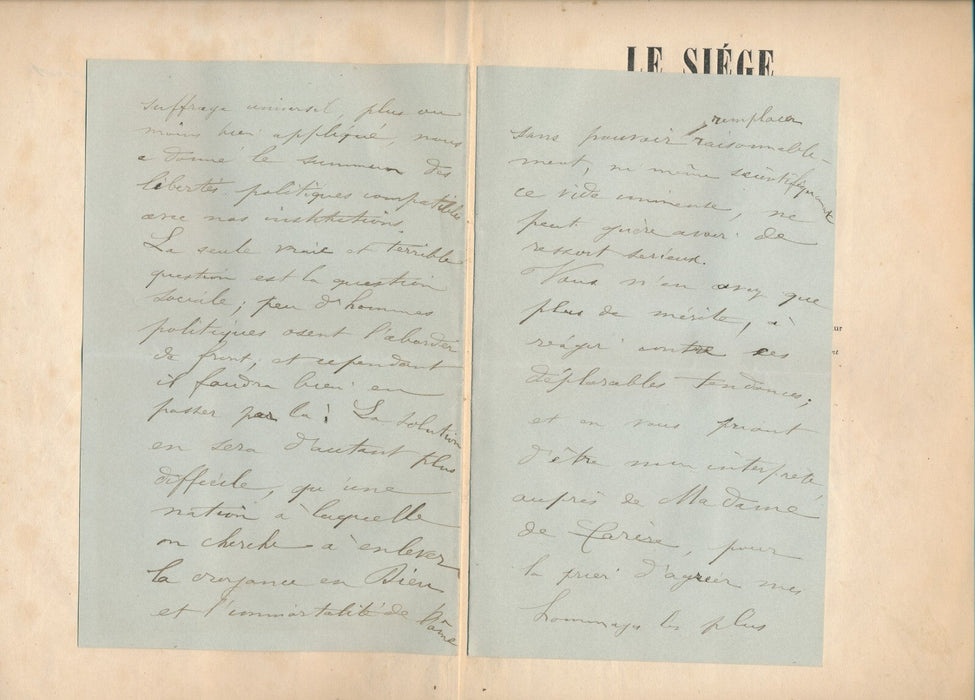 suffrage universel, plus ou
moins bien appliqué, nous
a donné le summum des
libertés politiques compatibles
avec nos institutions.
La seule vraie et terrible
question est la question
sociale; peu d'hommes
politiques osent l'aborder
de front, et cependant
il faudra bien en
passer par la! La solution
en sera d'autant plus
difficile, qu'une
nation à laquelle
on cherche à enlever
la croyance en Dieu
et l'immortalité de l'âme
LE SIÉGE
remplacer
sans pouvoir raisonnable-
ment, ni même scientifiquement
ce vide immense, ne
peut guère avoir de
ressort sérieux.
Vous n'en avez que
plus de mérite, à
réagir contre ces
déplorables tendances;
et en vous priant
d'être mon interprète,
auprès de Madame
de, pour
la prier d'agréer mes
hommages les plus
ur